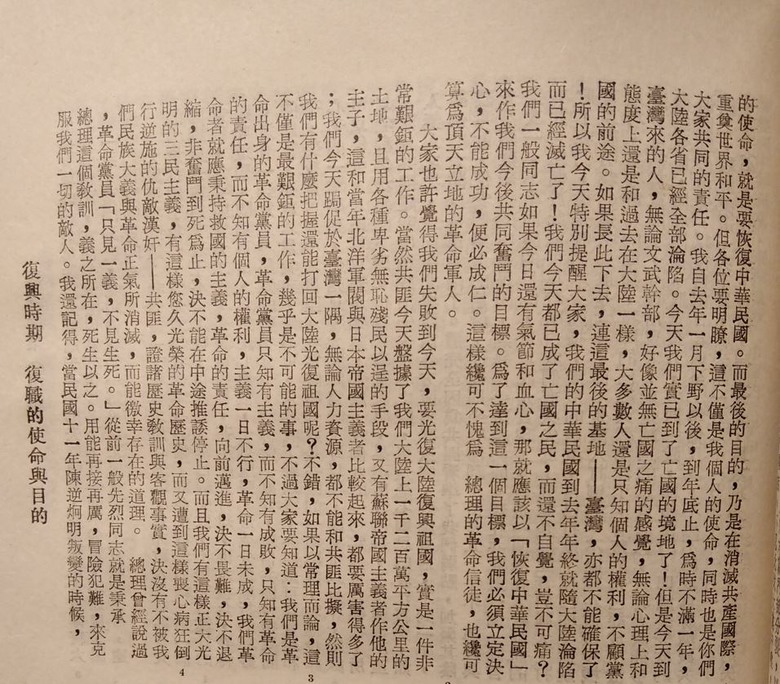 的使命，就是要恢復中華民國。而最後的目的，乃是在消滅共產國際，
重奠世界和平。但各位要明瞭，這不僅是我個人的使命，同時也是你們
大家共同的責任。我自去年一月下野以後，到年底止，為時不滿一年，
大陸各省已經全部淪陷。今天我們實已到了亡國的境地了！但是今天到
臺灣來的人，無論文武幹部，好像並無亡國之痛的感覺，無論心理上和
態度上還是和過去在大陸一樣，大多數人還是只知個人的權利，不顧黨
國的前途。如果長此下去，連這最後的基地——臺灣，亦都不能確保了
！所以我今天特別提醒大家，我們的中華民國到去年年終就隨大陸淪陷
而已經滅亡了！我們今天都已成了亡國之民，而還不自覺，豈不可痛？
我們一般同志如果今日還有氣節和血心，那就應該以「恢復中華民國」
來作我們今後共同奮鬥的目標。為了達到這一個目標，我們必須立定決
心，不能成功，便必成仁。這樣纔可不愧爲　總理的革命信徒，也纔可
算爲頂天立地的革命軍人。
大家也許覺得我們失敗到今天，要光復大陸復興祖國，實是一件非
常艱鉅的工作。當然共匪今天盤據了我們大陸上一千二百萬平方公里的
土地，且用各種卑劣無恥殘民以逞的手段，又有蘇聯帝國主義者作他的
主子，這和當年北洋軍閥與日本帝國主義者比較起來，都要厲害得多了
；我們今天跼促於臺灣一隅，無論人力資源，都不能和共匪比擬，然則
我們有什麼把握還能打回大陸光復祖國呢？不錯，如果以常理而論，這
不僅是最艱鉅的工作，幾乎是不可能的事，不過大家要知道：我們是革
命出身的革命黨員，革命黨員只知有主義，而不知有成敗，只知有革命
的責任，而不知有個人的權利，主義一日不行，革命一日未成，我們革
命者就應秉持救國的主義，革命的責任，向前邁進，決不畏難，決不退
縮，非奮鬥到死爲止，決不能在中途推諉停止。而且我們有這樣正大光
明的三民主義，有這樣悠久光榮的革命歷史，而又遭到這樣喪心病狂倒
行逆施的仇敵漢奸——共匪，證諸歷史教訓與客觀事實，決沒有不被我
們民族大義與革命正氣所消滅，而能徼幸存在的道理。　總理曾經說過
，革命黨員「只見一義，不見生死。」從前一般先烈同志就是秉承
總理這個敎訓，義之所在，死生以之。用能再接再厲，冒險犯難，來克
服我們一切的敵人。我還記得，當民國十一年陳逆炯明叛變的時候，
復興時期　復職的使命與目的
3
4